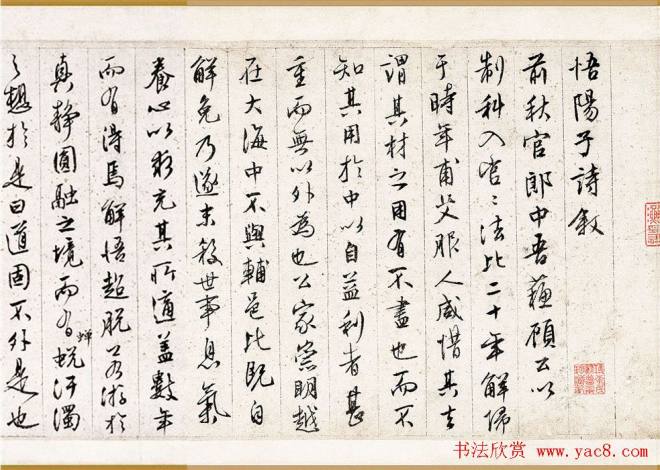 悟陽子詩敘
前秋官郎中吾蘇顧公以
制科入官官法比二十年解歸
于時年甫艾服人咸惜其去
謂其材之用有不盡也而不
知其用於中以自益利者甚
重而無以外為也公家崇明越
在大海中不與輔邑比既自
解免乃遂末殺世事息氣
養心以務充其所適蓋數年
而有得焉解悟超脫若游於
真靜圓融之境而有蟬蛻汙濁
之想於是曰道固不外是也
书法欣赏 www.yac8.com